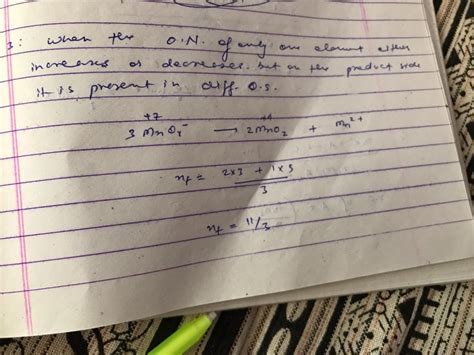 3: When the O.N. of only one element either
increases or decreases but on the product side
it is present in diff O.S.
+7 +4
3 MnO4⁻ → 2MnO2 + Mn²⁺
nf = 2x3 + 1x5
3
nf = 11/3